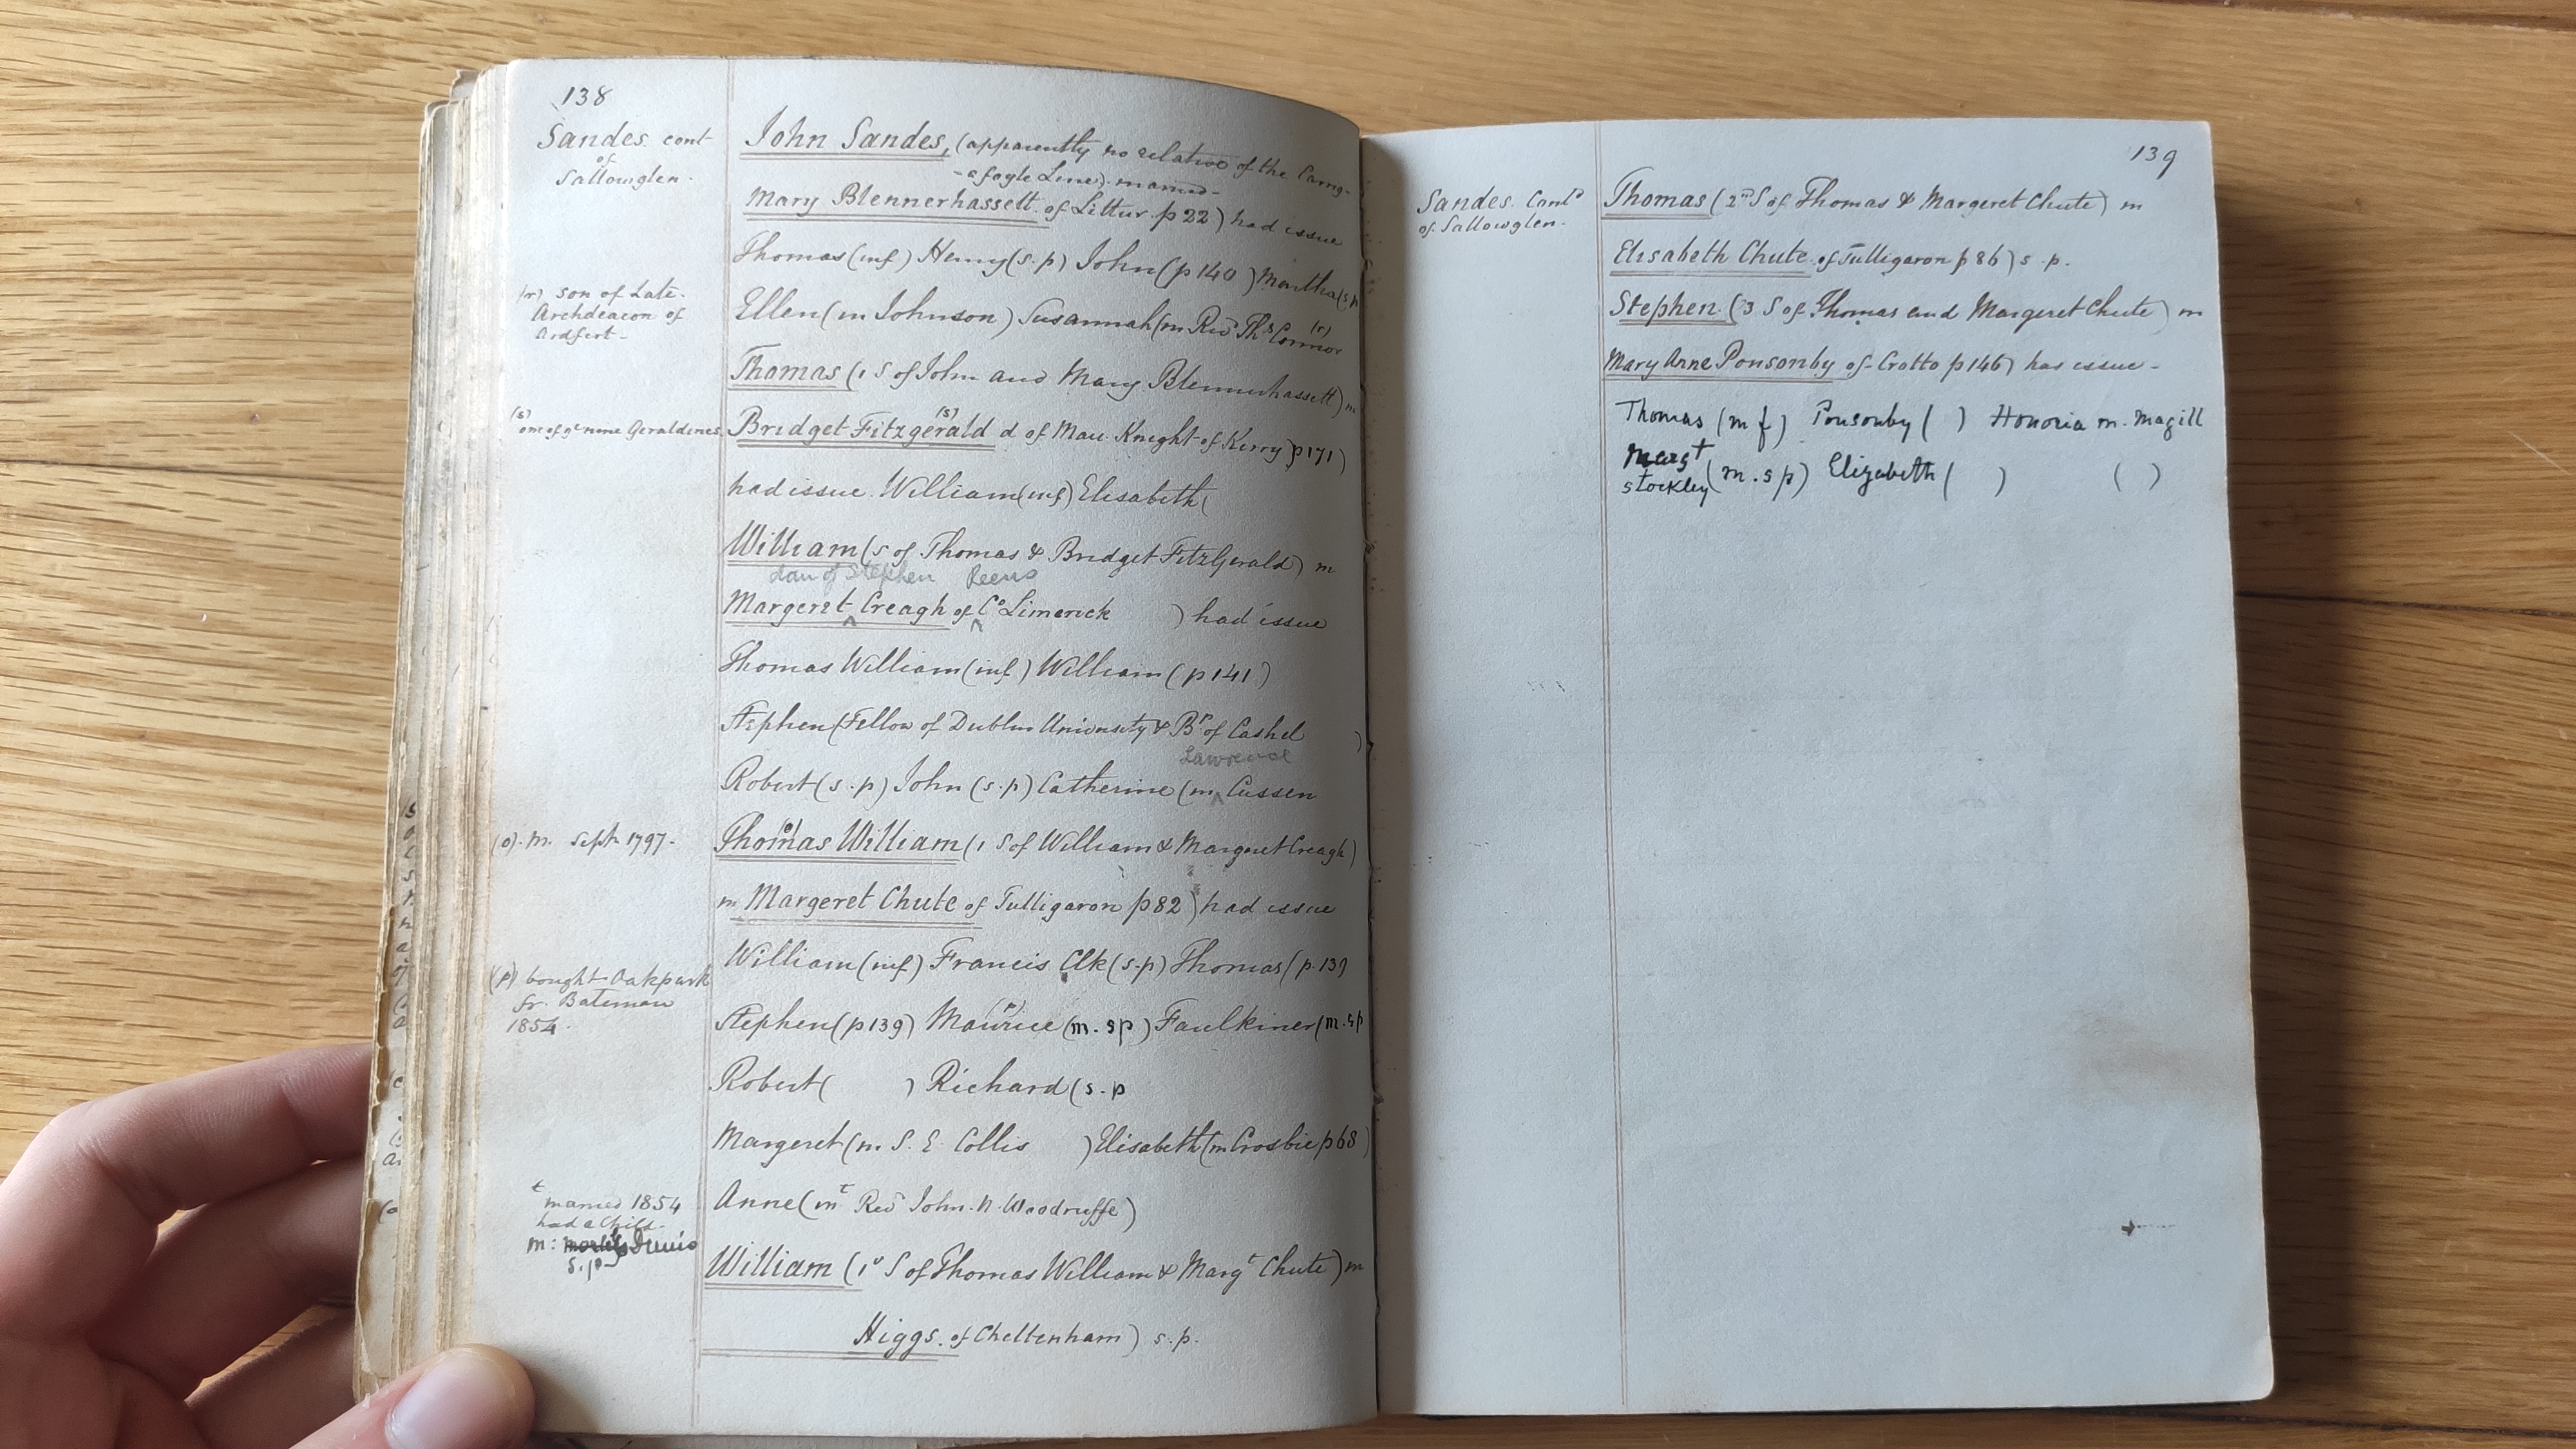 138
Sandes cont
of
Sallowglen.
John Sandes, (apparently no relative of the Carrig-
-afoyle Line). married-
Mary Blennerhassett of Littur. p 22) had issue
Thomas (inf) Henry (s.p) John (p 140) Martha (s.p
(r) son of Late.
Archdeacon of
Ardfert-
Ellen (m Johnson) Susannah (m Revd Thos Connor (r)
Thomas (1 S of John and Mary Blennerhassett) m
(s)
one of genuine Geraldines.
Bridget Fitzgerald (s) d of Mau. Knight of Kerry p171)
had issue. William (inf) Elisabeth (
William (s of Thomas & Bridget FitzGerald) m
dau of Stephen Reens
Margeret Creagh of Co Limerick ) had issue
Thomas William (inf) William (p 141)
Stephen (Fellow of Dublin University & Bp of Cashel )
Lawrence
Robert (s.p) John (s.p) Catherine (m Cussen
(o). m. Sept 1797.
Thomas (o) William (1 S of William & Margeret Creagh)
m Margeret Chute of Tulligaron p 82) had issue
William (inf) Francis Clk (s.p) Thomas (p.139
(p) bought Oakpark
fr. Bateman
1854.
Stephen (p139) Maurice (p) (m. sp) Faulkiner (m. sp
Robert ( ) Richard (s.p
Margeret (m. S. E. Collis ) Elisabeth (m Crosbie p68)
t
married 1854
had a Child.
m:
s.p
Anne (m t Revd John. N. Woodruffe)
William (1st S of Thomas William & Margt Chute) m
Higgs. of Cheltenham) s.p.
139
Sandes. Contd
of Sallowglen.
Thomas (2nd S of Thomas & Margeret Chute) m
Elisabeth Chute of Tulligaron p 86) s.p.
Stephen (3 S of Thomas and Margeret Chute) m
Mary Anne Ponsonby of Crotto p 146) has issue-
Thomas (m f) Ponsonby ( ) Honoria m. Magill
Margt
Stockley (m. s p) Elizabeth ( ) ( )